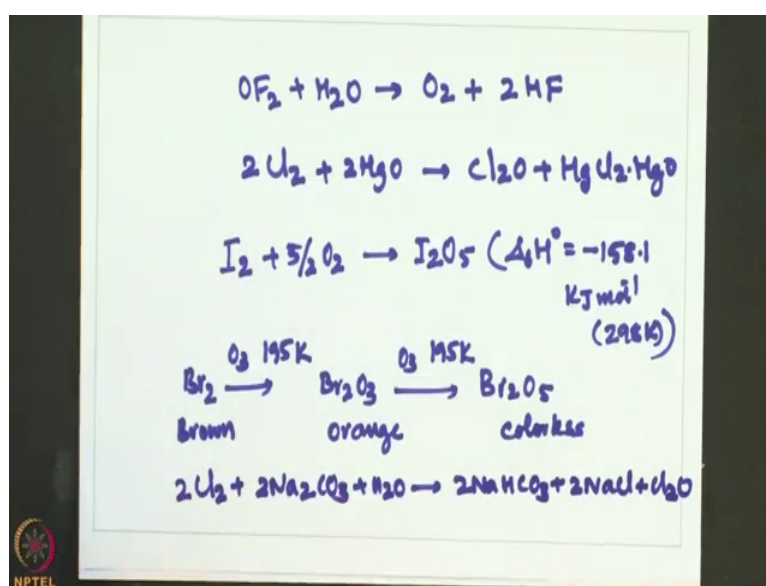 OF2 + H2O → O2 + 2HF
2Cl2 + 2HgO → Cl2O + HgCl2·HgO
I2 + 5/2 O2 → I2O5 (ΔfH° = -158.1
KJ mol-1
(298K))
O3 195K O3 195K
Br2 → Br2O3 → Br2O5
Brown orange colorless
2Cl2 + 2Na2CO3 + H2O → 2NaHCO3 + 2NaCl + Cl2O
NPTEL